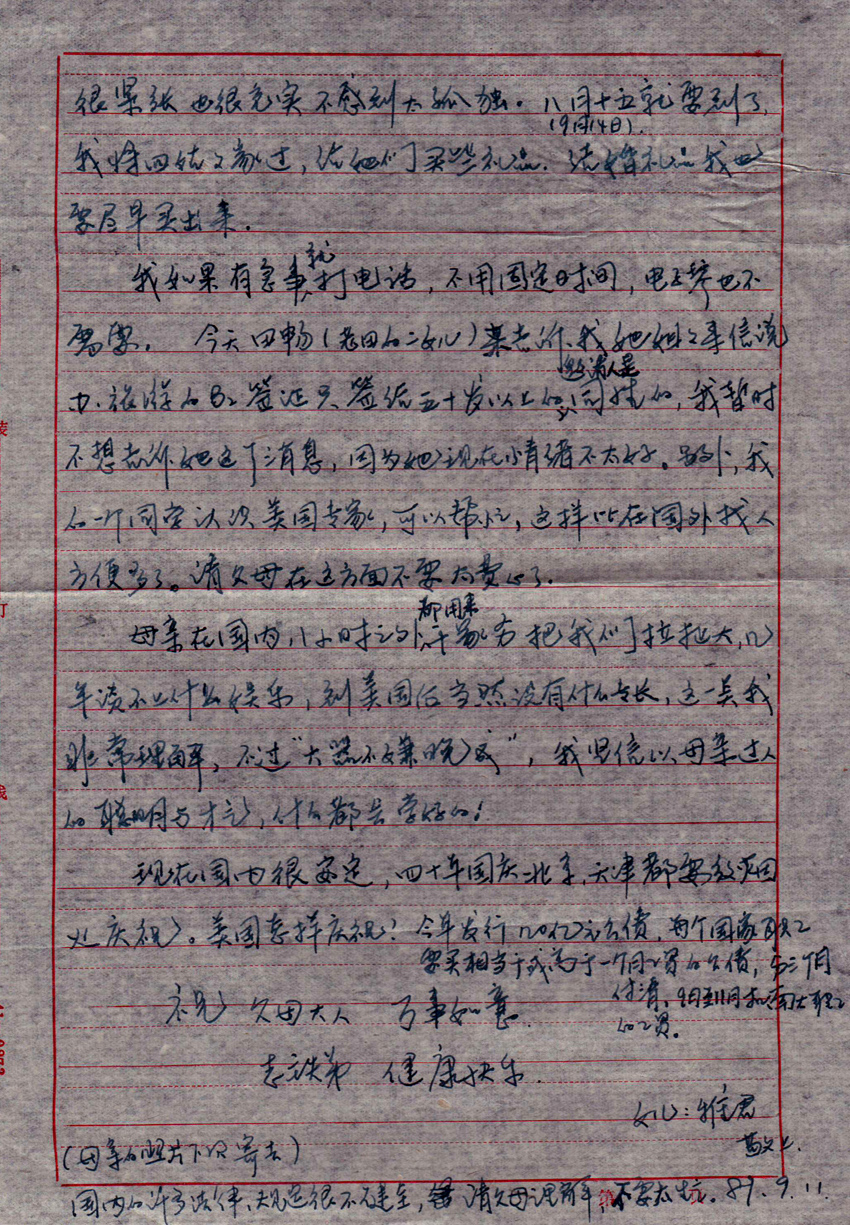 很紧张也很充实不感到太孤独。八月十五就要到了,
(9月14日).
我将回姑姑家过,给他们买些礼品.结婚礼品我也
要尽早买出来.
我如果有急事就打电话,不用固定时间,电话费也不
需要. 今天田畅(老田的二女儿)来告诉我她姐姐来信说
办旅游的B2签证只签给五十岁以上的,邀请人是同姓的,我暂时
不想告诉她这个消息,因为她现在情绪不太好。另外,我
的一个同学认识美国专家,可以帮忙,这样比在国外找人
方便多了。请父母在这方面不要太费心了.
母亲在国内,八小时之外都用来干家务把我们拉扯大,几
年谈不上什么娱乐,到美国后当然没有什么专长,这一点我
非常理解,不过"大器不嫌晚成",我坚信以母亲过人
的聪明与才,什么都会学好的!
现在国内很安定,四十年国庆北京,天津都要放灭国
火庆祝。美国怎样庆祝?今年发行120亿元公债,每个国家职工
要买相当于或高于一个月工资的公债,分三个月
付清.9月到11月扣南大职工
的工资。
祝父母大人 万事如意.
志铁弟 健康快乐.
女儿:雅君
敬上.
(母亲的照片下次寄去)
国内的许多法律、规定很不健全,请父母谅解 不要太 . 89.9.11.